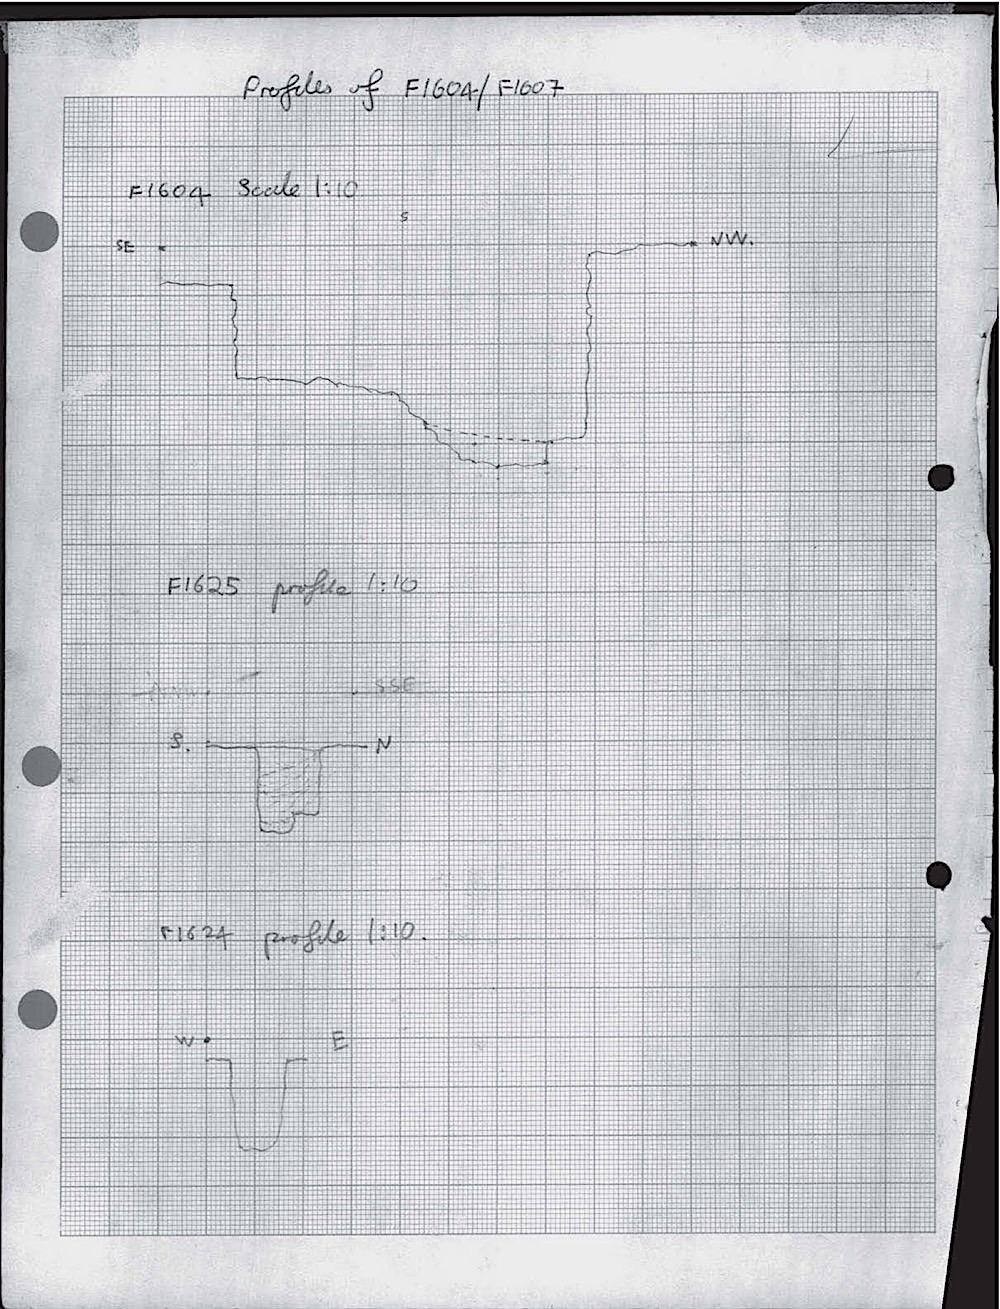 Profiles of F1604/F1607
F1604 Scale 1:10
S
SE NW.
F1625 profile 1:10
SSE
S. N
F1624 profile 1:10.
W E